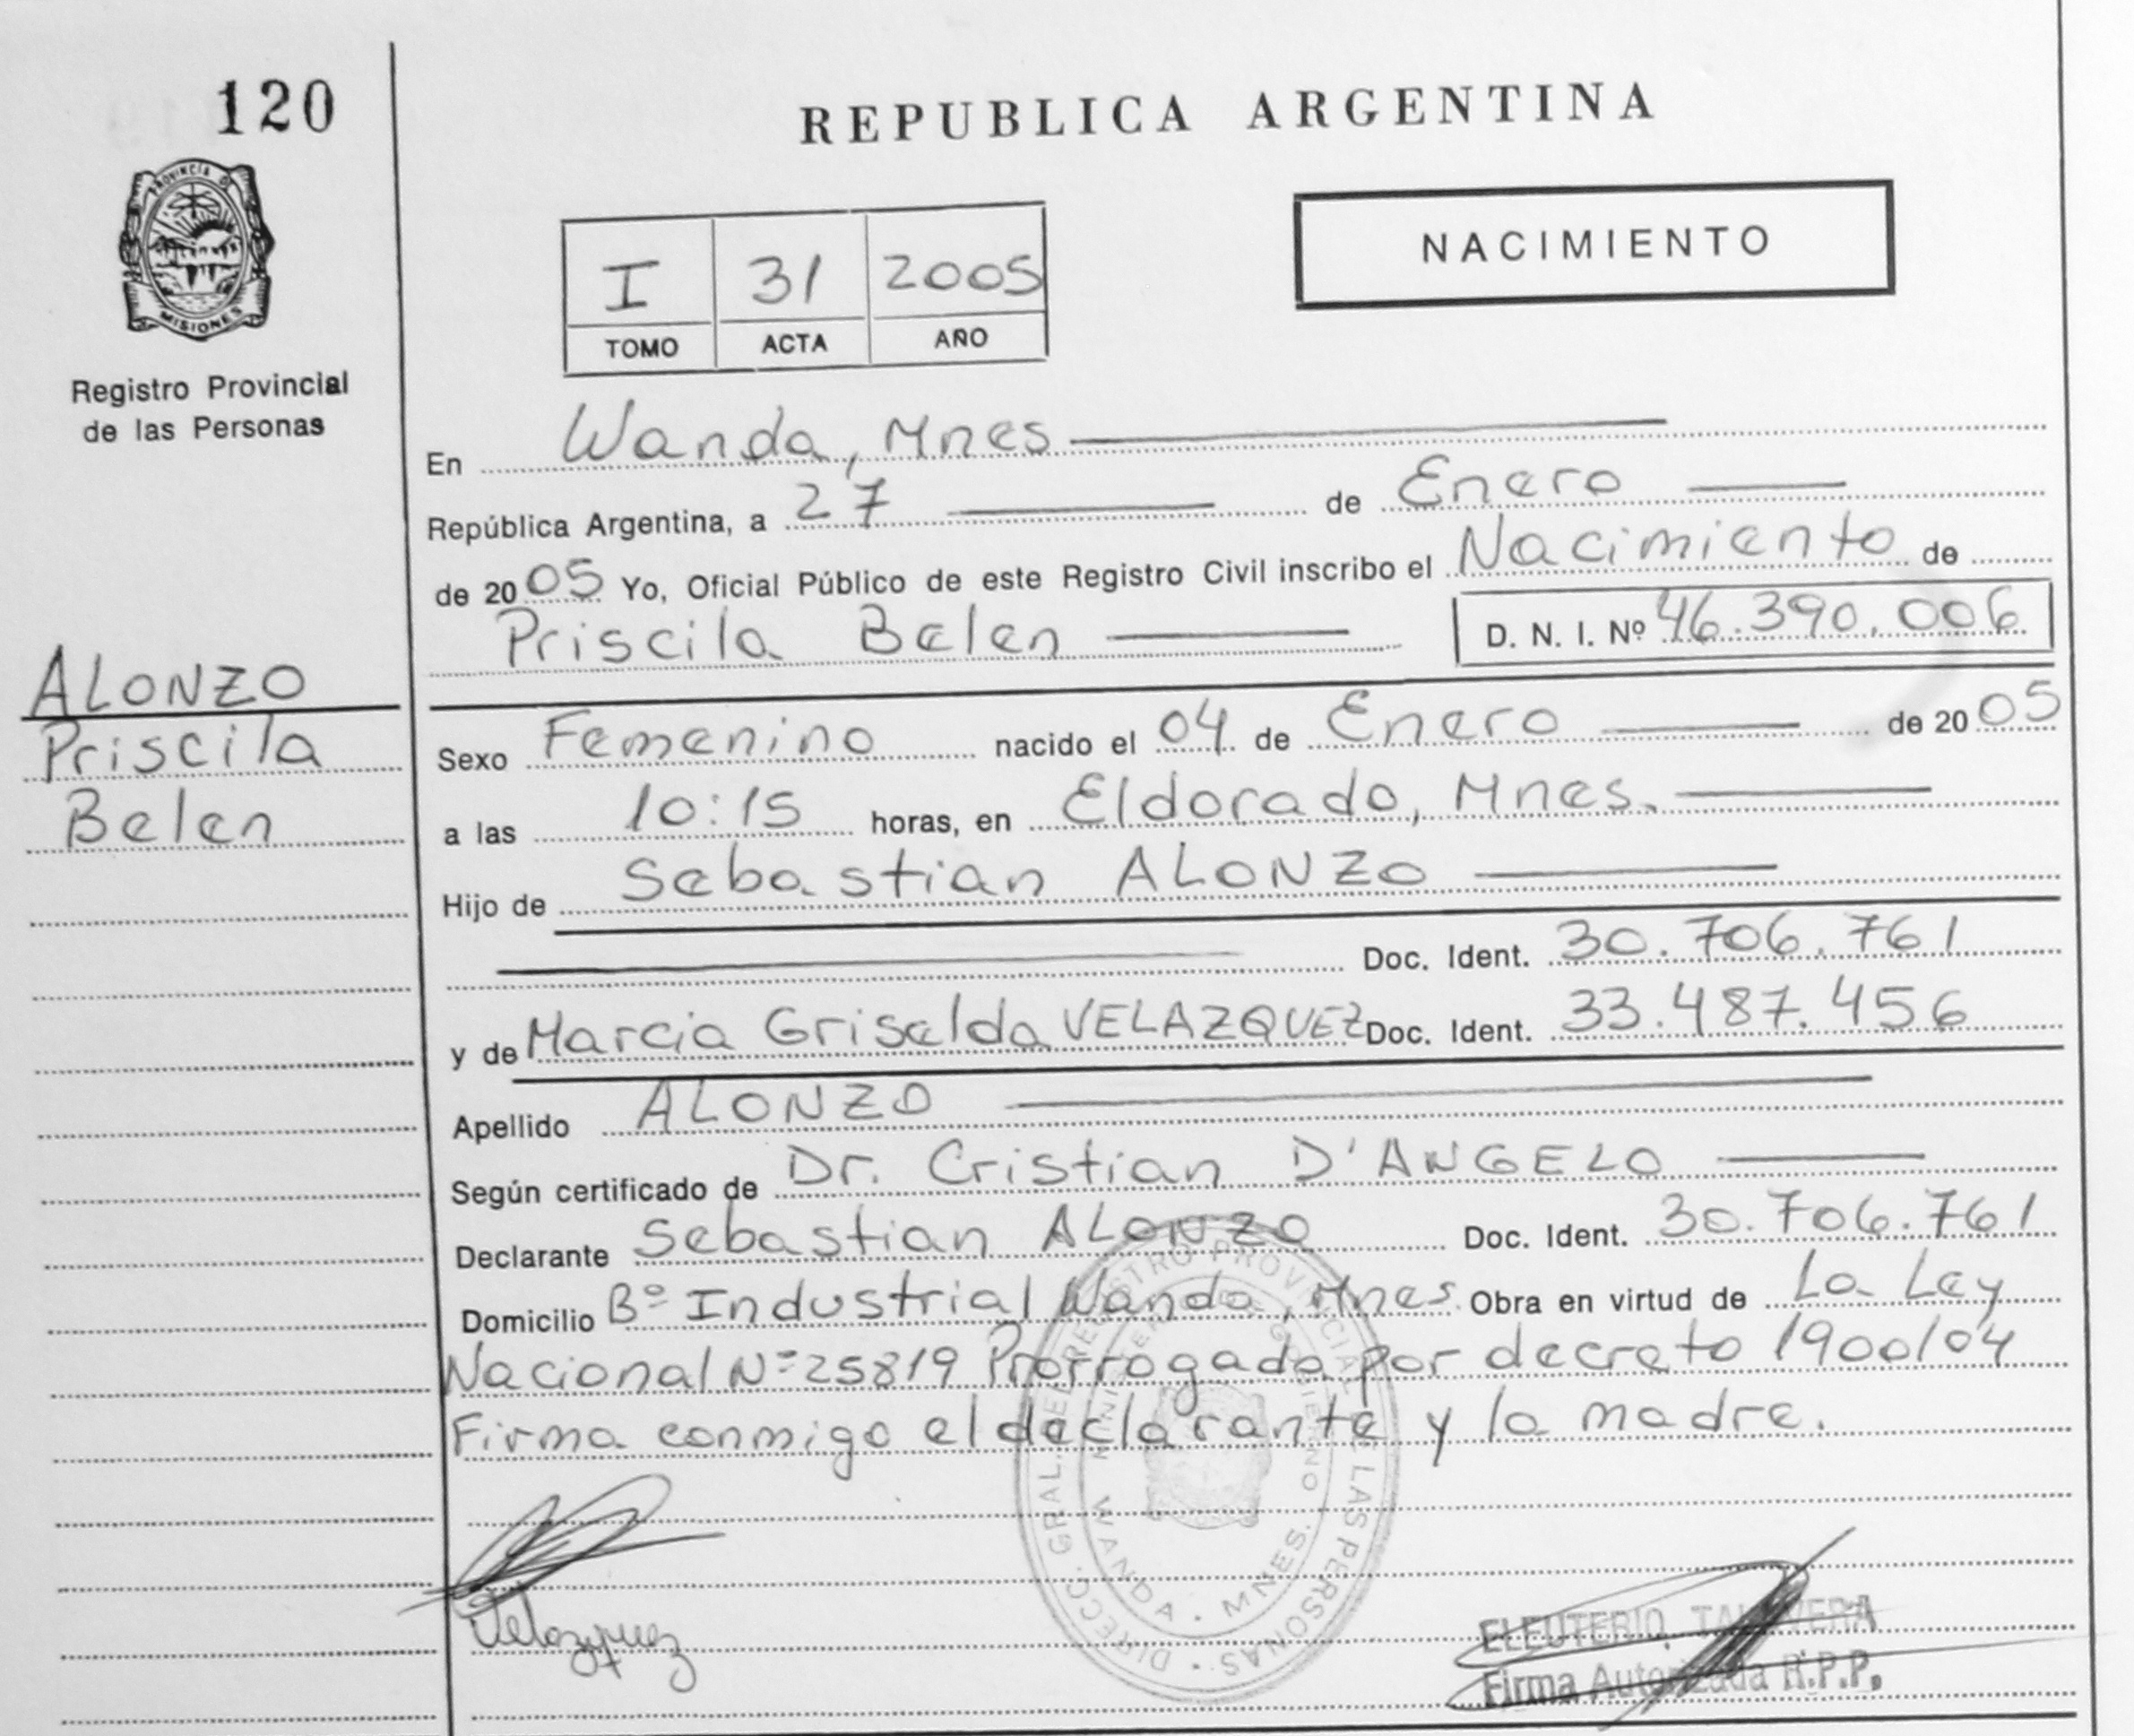 120
REPUBLICA ARGENTINA
PROVINCIA DE
MISIONES
Registro Provincial
de las Personas
I 31 2005
TOMO ACTA AÑO
NACIMIENTO
En Wanda, Mnes
República Argentina, a 27 de Enero
de 2005 Yo, Oficial Público de este Registro Civil inscribo el Nacimiento de
Priscila Belen D. N. I. Nº 46.390.006
ALONZO
Priscila
Belen
Sexo Femenino nacido el 04 de Enero de 2005
a las 10:15 horas, en Eldorado, Mnes.
Hijo de Sebastian ALONZO
Doc. Ident. 30.706.761
y de Marcia Griselda VELAZQUEZ Doc. Ident. 33.487.456
Apellido ALONZO
Según certificado de Dr. Cristian D'ANGELO
Declarante Sebastian ALONZO Doc. Ident. 30.706.761
Domicilio Bº Industrial Wanda, Mnes. Obra en virtud de La Ley
Nacional Nº 25819 Prorrogada por decreto 1900/04
Firma conmigo el declarante y la madre.
DIRECC. GRAL. DEL REGISTRO PROVINCIAL DE LAS PERSONAS
MINISTERIO DE GOBIERNO
WANDA - MNES.
Velazquez
ELEUTERIO TALAVERA
Firma Autorizada R.P.P.